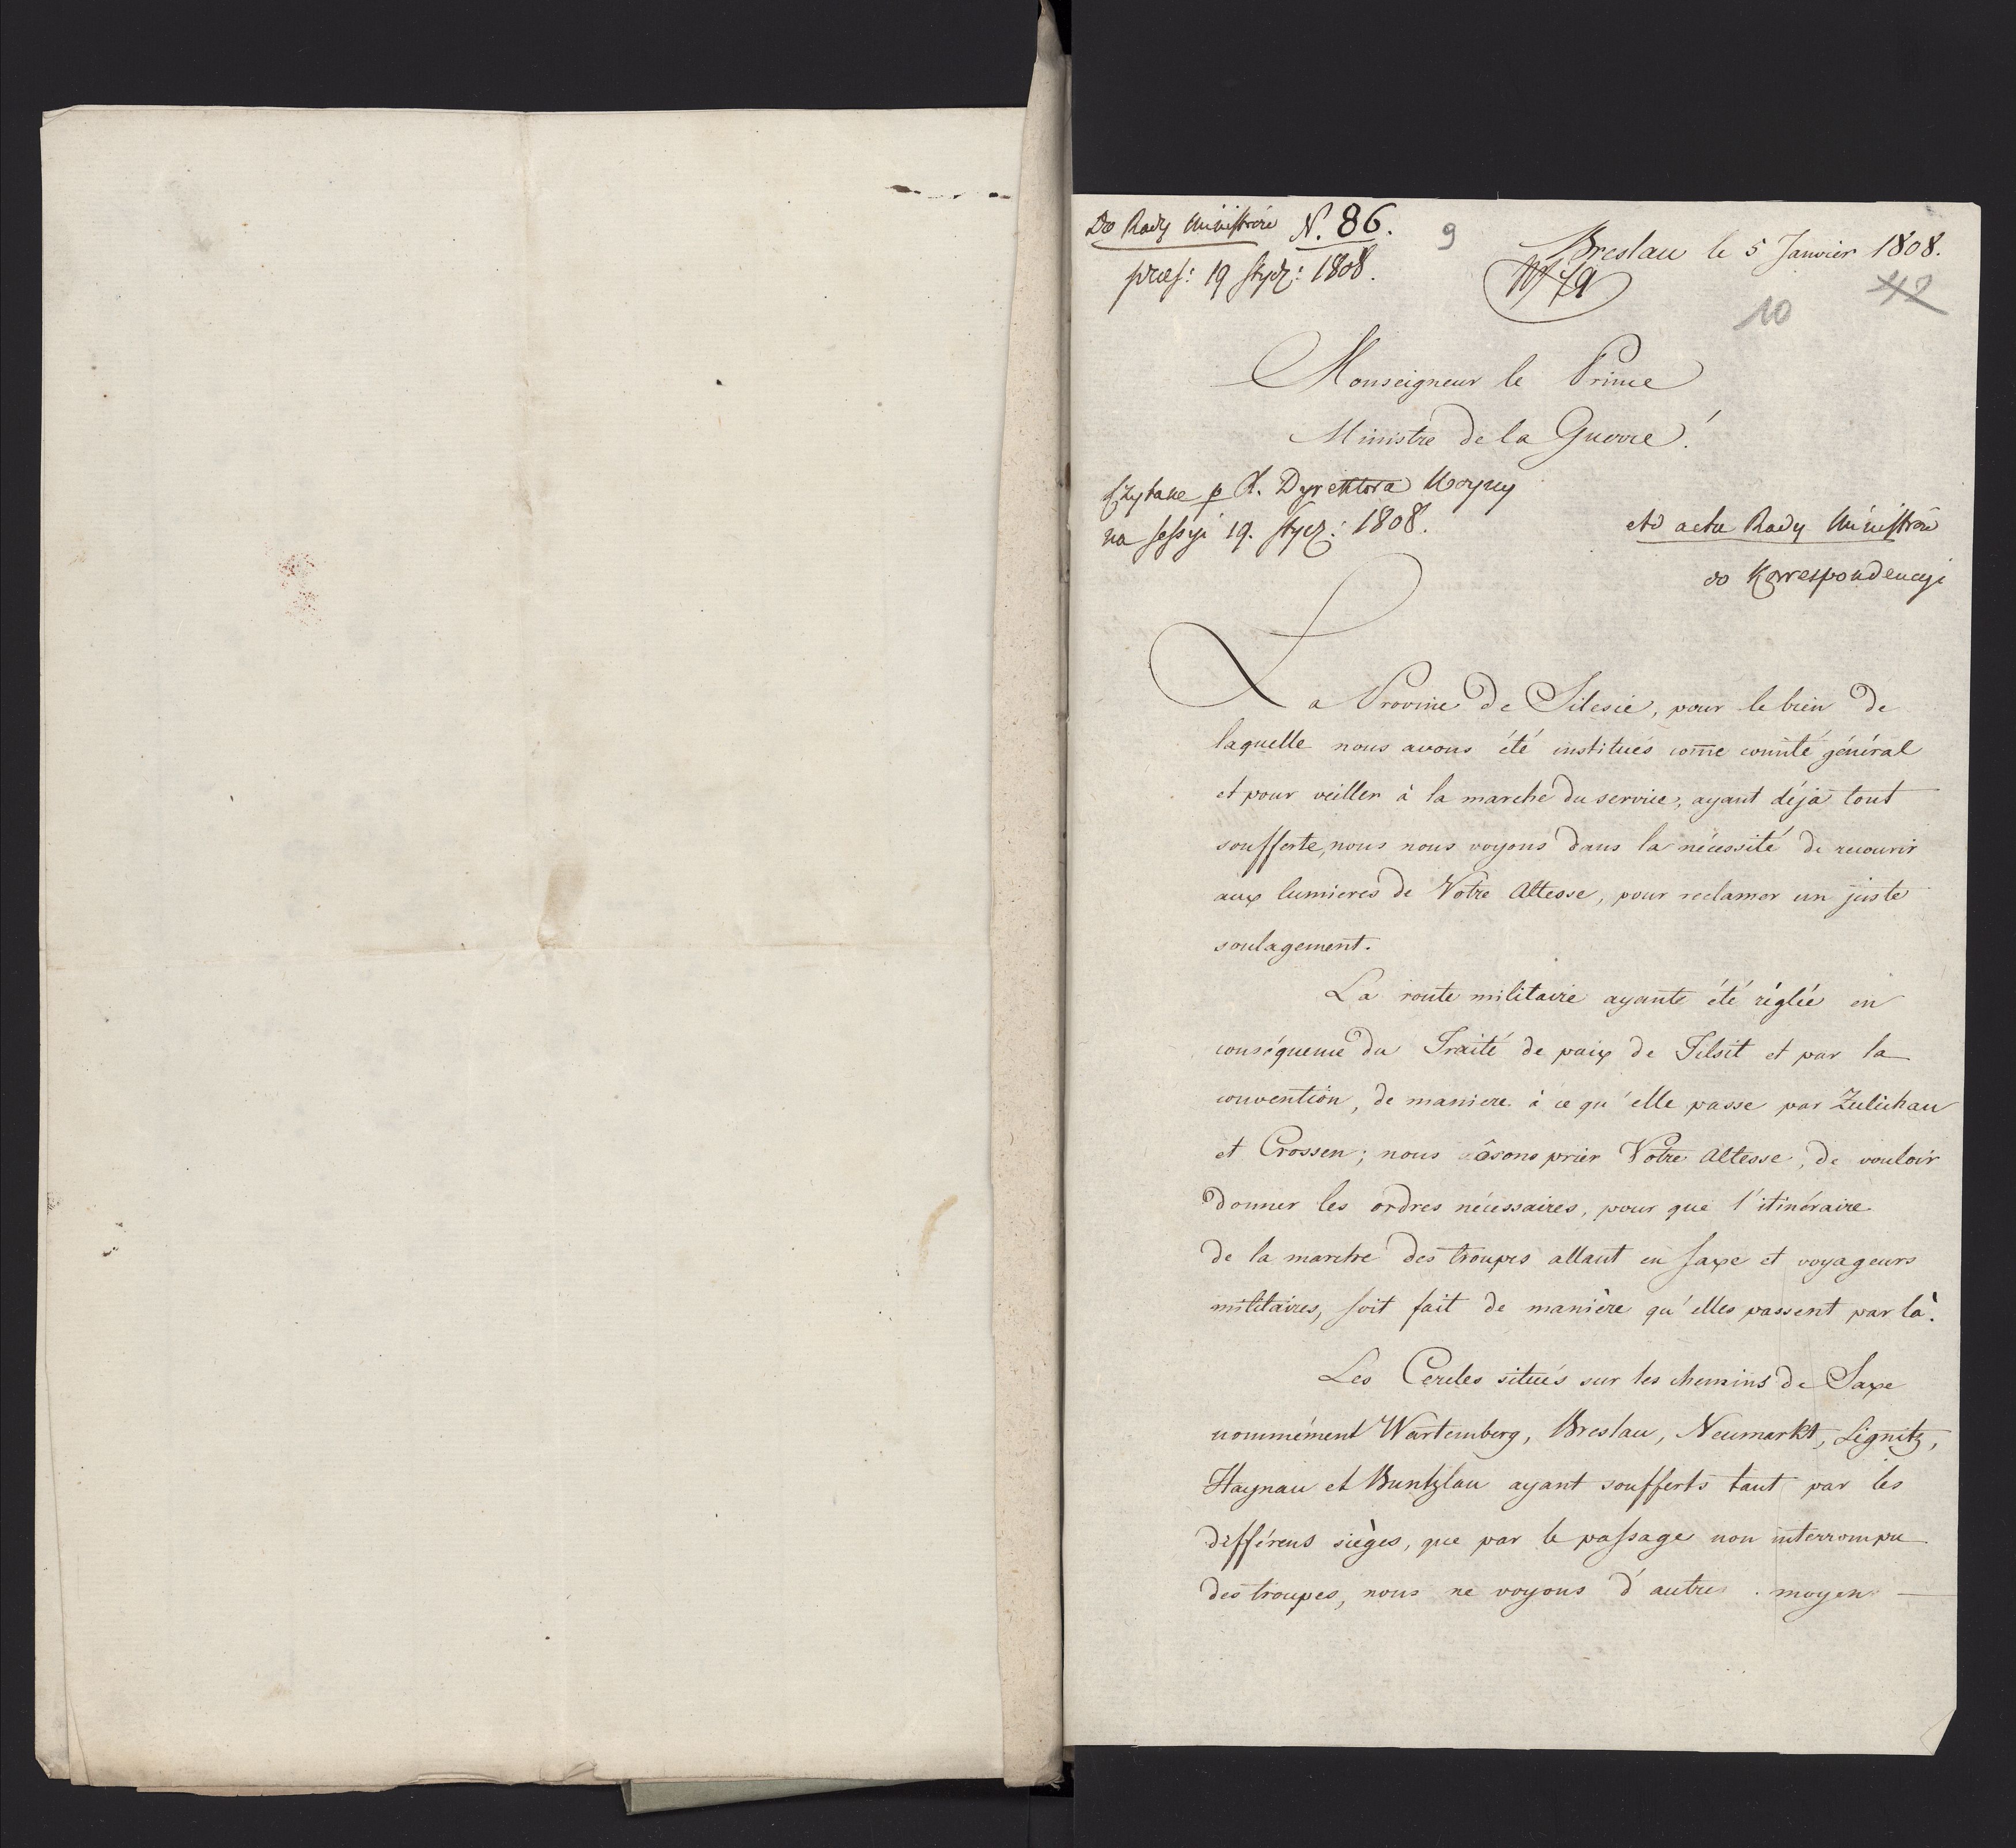 Do Rady Ministrów N. 86.
praes: 19 stycz: 1808.
9
Breslau le 5 Janvier 1808.
10
42
Monseigneur le Prince
Ministre de la Guerre!
Czytane p X. Dyrektora Woyny
na sessyi 19. stycz: 1808.
ad acta Rady Ministrów
do Korrespondencyi
La Province de Silesie, pour le bien de
laquelle nous avons été institués come comité général
et pour veiller à la marche du service, ayant déja tout
soufferte, nous nous voyons dans la nécessité de recourir
aux lumieres de Votre Altesse, pour reclamer un juste
soulagement.
La route militaire ayante été réglée en
conséquence du Traité de paix de Tilsit et par la
convention, de maniere à ce qu'elle passe par Zulichau
et Crossen; nous osons prier Votre Altesse, de vouloir
donner les ordres nécessaires, pour que l'itinéraire
de la marche des troupes allant en Saxe et voyageurs
militaires, soit fait de manière qu'elles passent par là.
Les Cercles situés sur les chemins de Saxe
nommément Wartemberg, Breslau, Neumarkt, Lignitz,
Haynau et Buntzlau ayant soufferts tant par les
différens sièges, que par le passage non interrompu
des troupes, nous ne voyons d'autres moyens